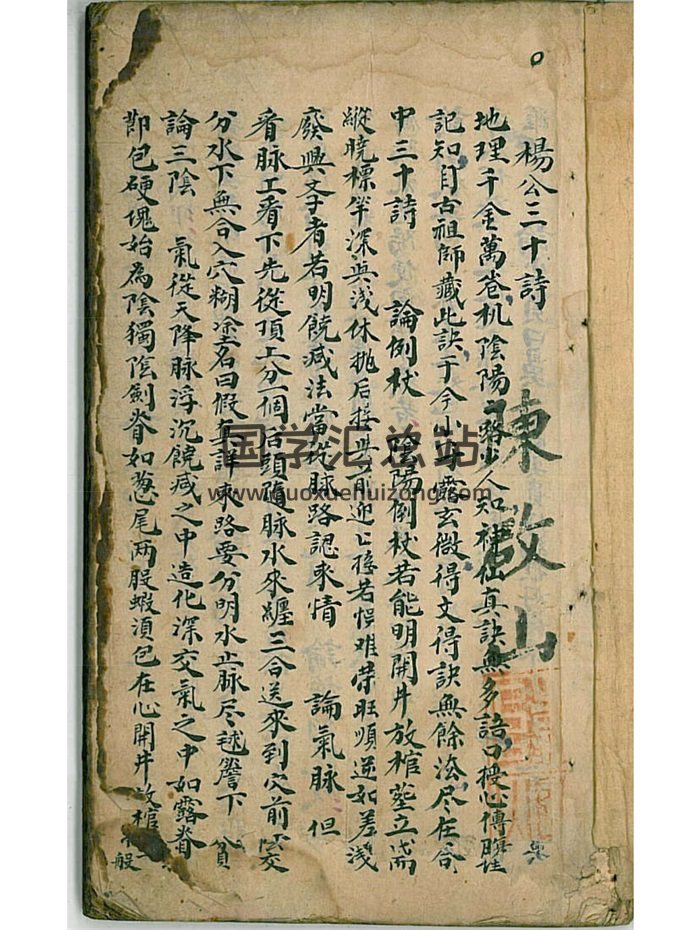 楊公三十詩
陳啟山
地理千金萬卷机陰陽一路少人知神仙真訣無多語口授心傳
記知自古祖師藏此訣于今小露玄微得文得訣無餘法尽在
中三十詩 論倒杖 陰陽倒杖若能明開井放棺莖立
縱曉標竿深與浅休拋后接與前迎迎接若悮难荣旺順逆如差浅
廢興文字者若明饒减法當從脉路認來情 論氣脉 但
看脉工看下先從頂上分一個后頭隨脉水來纏三合送來到穴前
分水下無合入穴糊塗名曰假真詳來路要分明水止脉尽毬簷下
論三陰 氣從天降脉浮沉饒减之中造化深交氣之中如露脊
即包硬塊始為陰獨陰劍脊如葱尾两股蝦須包在心開井放棺
般
国学汇总站
www.guoxuehuizong.com